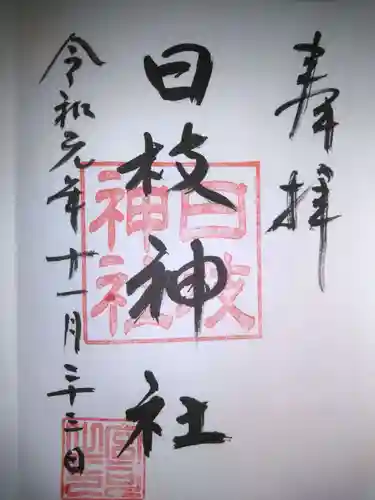 奉拝
日枝神社
令和元年十一月二十三日
日枝
神社